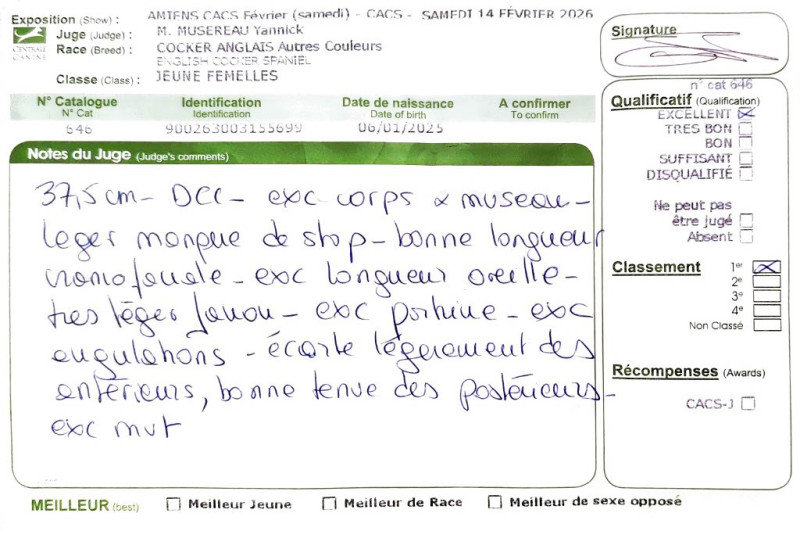 Exposition (Show) : AMIENS CACS Février (samedi) - CACS - SAMEDI 14 FÉVRIER 2026
Juge (Judge) : M. MUSEREAU Yannick
Race (Breed) : COCKER ANGLAIS Autres Couleurs
ENGLISH COCKER SPANIEL
Classe (Class) : JEUNE FEMELLES
CENTRALE CANINE
N° Catalogue Identification Date de naissance A confirmer
N° Cat Identification Date of birth To confirm
646 900263003155699 06/01/2025
Notes du Juge (Judge's comments)
37,5 cm - DCC - exc corps & museau -
leger manque de stop - bonne longueur
craniofaciale - exc longueur oreille -
tres léger fanon - exc poitrine - exc
angulations - écarte légerement des
antérieurs, bonne tenue des postérieurs -
exc mvt
MEILLEUR (best) Meilleur Jeune Meilleur de Race Meilleur de sexe opposé
Signature
n° cat 646
Qualificatif (Qualification)
EXCELLENT
TRES BON
BON
SUFFISANT
DISQUALIFIÉ
Ne peut pas
être jugé
Absent
Classement 1er
2e
3e
4e
Non Classé
Récompenses (Awards)
CACS-J